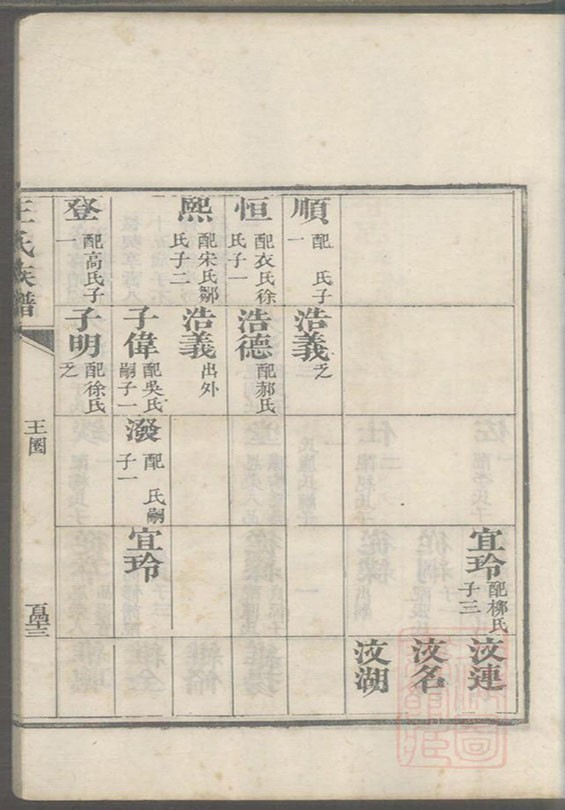 順 配 氏子一
恒 配衣氏徐氏子一
熙 配宋氏鄒氏子二
登 配高氏子一
浩義 乏
浩德 配郝氏
浩義 出外
子偉 配吳氏嗣子一
子明 配徐氏乏
潑 配 氏嗣子一
宜玲 配柳氏子三
宜玲
汶連
汶名
汶湖
王氏族譜
王圈